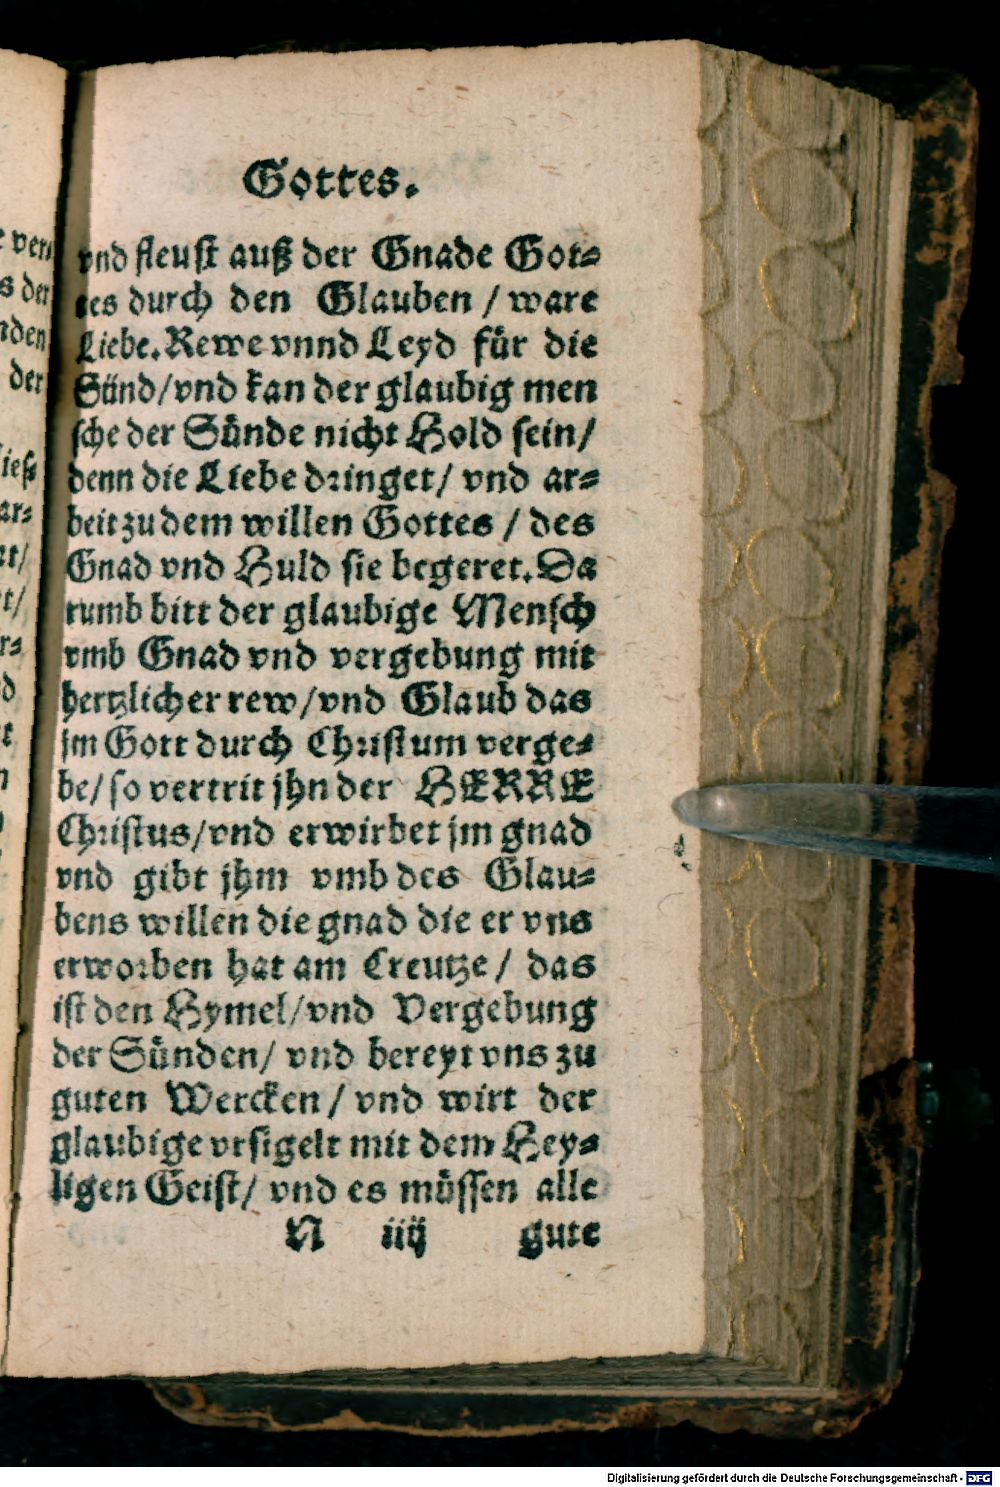 Gottes.
vnd fleust auß der Gnade Got⸗
tes durch den Glauben / ware
Liebe. Rewe vnnd Leyd für die
Sünd/vnd kan der glaubig men
sche der Sünde nicht Hold sein/
denn die Liebe dringet/ vnd ar⸗
beit zu dem willen Gottes / des
Gnad vnd Huld sie begeret. Da
rumb bitt der glaubige Mensch
vmb Gnad vnd vergebung mit
hertzlicher rew/vnd Glaub das
jm Gott durch Christum verge⸗
be/ so vertrit jhn der HERRE
Christus/vnd erwirbet jm gnad
vnd gibt jhm vmb des Glau⸗
bens willen die gnad die er vns
erworben hat am Creutze / das
ist den Hymel/vnd Vergebung
der Sünden/ vnd bereyt vns zu
guten Wercken / vnd wirt der
glaubige vrsigelt mit dem Hey⸗
ligen Geist/ vnd es müssen alle
N iiij gute
ver⸗
s der
nden
der
ar⸗
Digitalisierung gefördert durch die Deutsche Forschungsgemeinschaft - DFG